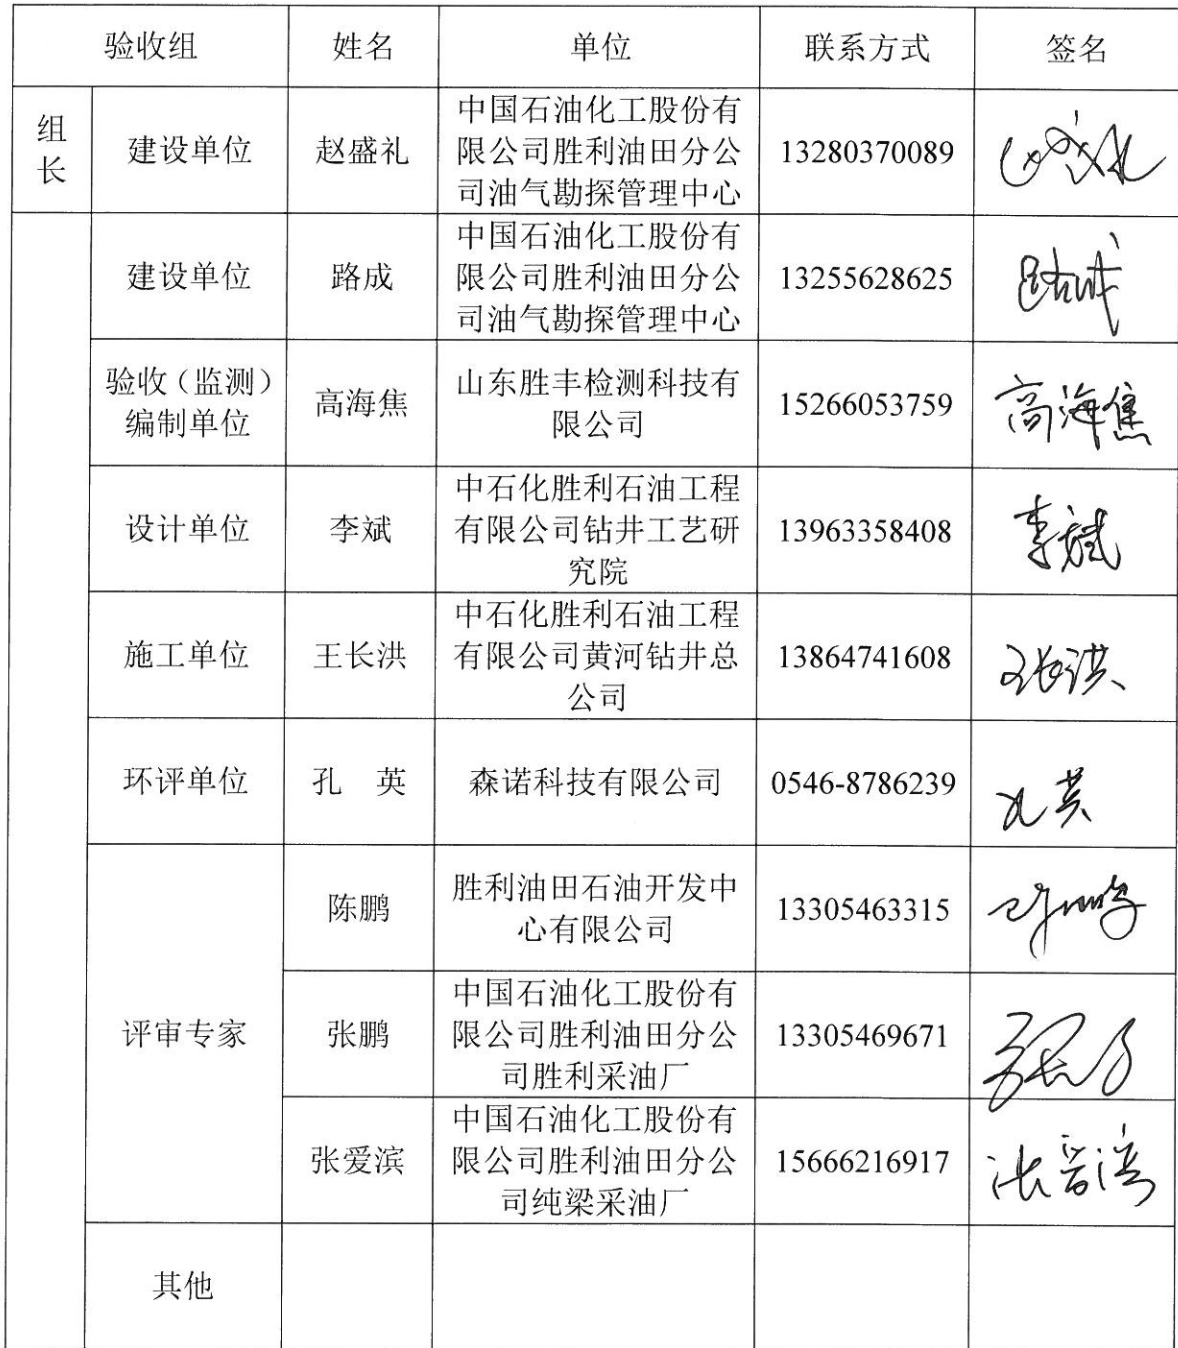 验收组 姓名 单位 联系方式 签名
组长 建设单位 赵盛礼 中国石油化工股份有
限公司胜利油田分公
司油气勘探管理中心 13280370089
建设单位 路成 中国石油化工股份有
限公司胜利油田分公
司油气勘探管理中心 13255628625 路成
验收（监测）
编制单位 高海焦 山东胜丰检测科技有
限公司 15266053759 高海焦
设计单位 李斌 中石化胜利石油工程
有限公司钻井工艺研
究院 13963358408 李斌
施工单位 王长洪 中石化胜利石油工程
有限公司黄河钻井总
公司 13864741608 王长洪
环评单位 孔 英 森诺科技有限公司 0546-8786239 孔英
评审专家 陈鹏 胜利油田石油开发中
心有限公司 13305463315
张鹏 中国石油化工股份有
限公司胜利油田分公
司胜利采油厂 13305469671
张爱滨 中国石油化工股份有
限公司胜利油田分公
司纯梁采油厂 15666216917
其他